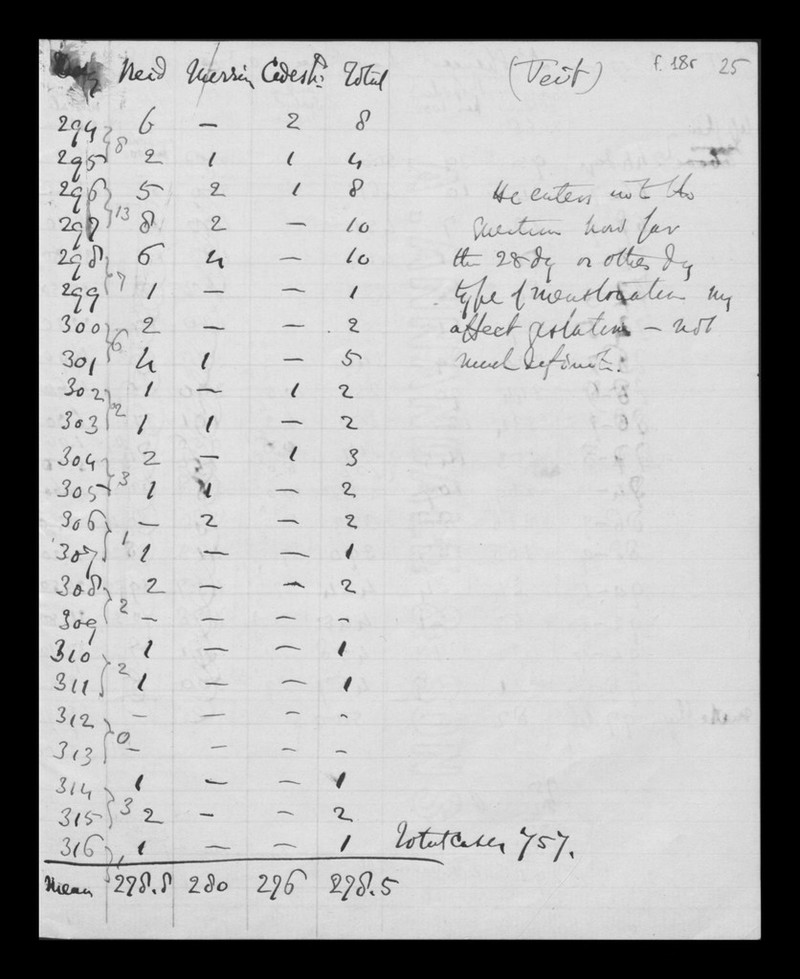 Day Reid Merrin Cedersh. Total (Tait) f. 18r 25
294 6 — 2 8
295 8 2 1 1 4
296 5 2 1 8 He enters into the
297 13 8 2 — 10 question how far
298 6 4 — 10 the 28 dy or other dy
299 7 1 — — 1 type of menstruation my
300 2 — — 2 affect gestation — not
301 6 4 1 — 5 much definite.
302 1 — 1 2
303 2 1 1 — 2
304 2 — 1 3
305 3 1 1 — 2
306 — 2 — 2
307 1 1 — — 1
308 2 — — 2
309 2 — — — -
310 1 — — 1
311 2 1 — — 1
312 — — - -
313 0 — - - -
314 1 — — 1
315 3 2 — - 2
316 1 1 — — 1 Total Cases 757.
Mean 278.8 280 276 278.5